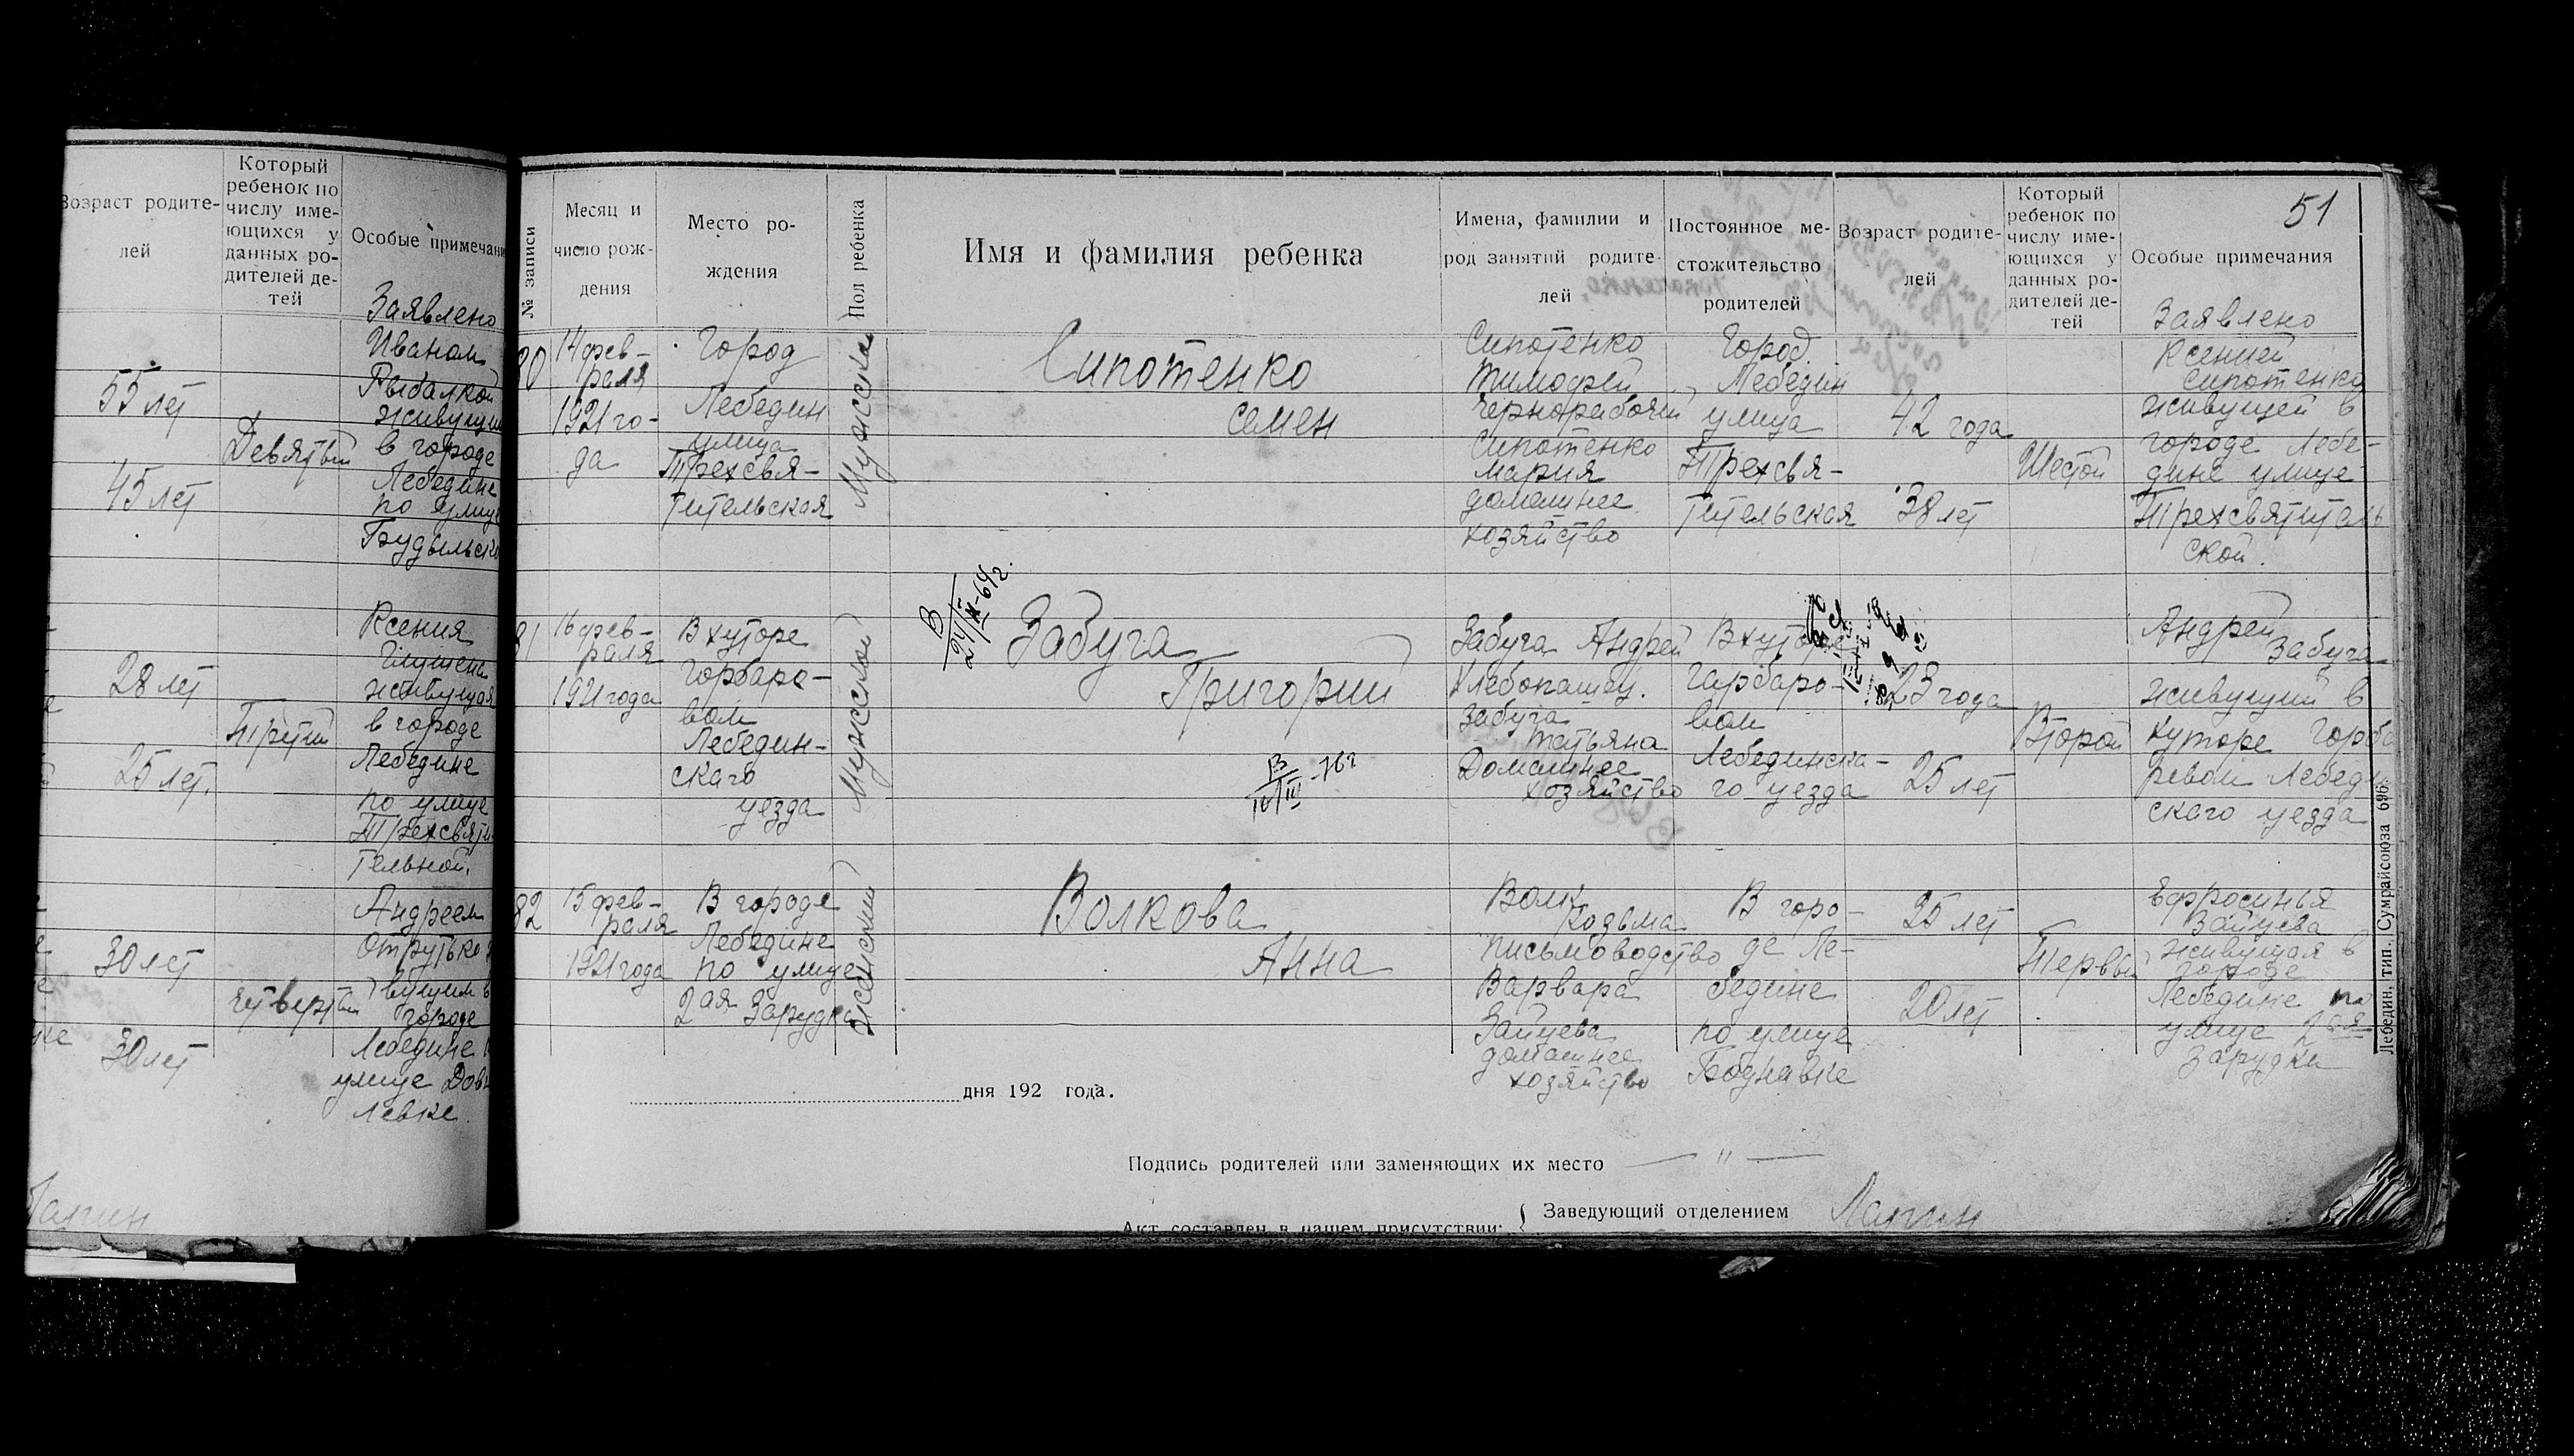 Возраст родите-
лей
Который
ребенок по
числу име-
ющихся у
данных ро-
дителей де-
тей
Особые примечани
Заявлено
Иваном
Рыбалкой
живущим
в городе
Лебедине
по улице
Будыльско
55 лет
45 лет
Девятый
28 лет
25 лет.
Третий
Ксения
живущая
в городе
Лебедине
по улице
Трехсвяти-
тельной.
30 лет
30 лет
Четвертый
Андреем
вущим в
городе
Лебедине
улице
левке.
Лапин
51
№ записи
Месяц и
число рож-
дения
Место ро-
ждения
Пол ребенка
Имя и фамилия ребенка
Имена, фамилии и
род занятий родите-
лей
Постоянное ме-
стожительство
родителей
Возраст родите-
лей
Который
ребенок по
числу име-
ющихся у
данных ро-
дителей де-
тей
Особые примечания
80
14 фев-
раля
1921 го-
да
Город
Лебедин
улица
Трехсвя-
тительская
Мужской
Сипотенко
Семен
Сипотенко
Тимофей
чернорабочий
Сипотенко
Мария
домашнее
хозяйство
Город
Лебедин
улица
Трехсвя-
тительская
42 года
38 лет
Шестой
Заявлено
Ксенией
Сипотенко
живущей в
городе Лебе-
дине улице
Трехсвятитель
ской.
81
16 фев-
раля
1921 года
В хуторе
Горбаро-
вом
Лебедин-
скаго
уезда
Мужской
Забуга
Григорий
В
IV/III-76г
Забуга Андрей
Хлебопашец.
Забуга
Татьяна
Домашнее
хозяйство
В хуторе
Гарбаро-
вом
Лебединска-
го уезда
23 года
25 лет
Второй
Андрей
Забуга
живущий в
хуторе Горба
ревом Лебед
скаго уезда
82
15 фев-
раля
1921 года
В городе
Лебедине
по улице
2ая Зарудка
Женский
Волкова
Анна
Волк
Козьма
письмоводство
Варвара
Зайцева
домашнее
хозяйство
В горо-
де Ле-
бедине
по улице
25 лет
20 лет
Первый
Ефросинья
Зайцева
живущая в
городе
Лебедине по
улице 2ая
Зарудки
Лебедин. тип., Сумрайсоюза 696.
дня 192 года.
Подпись родителей или заменяющих их место — " —
Акт составлен в нашем присутствии:
Заведующий отделением Лапин